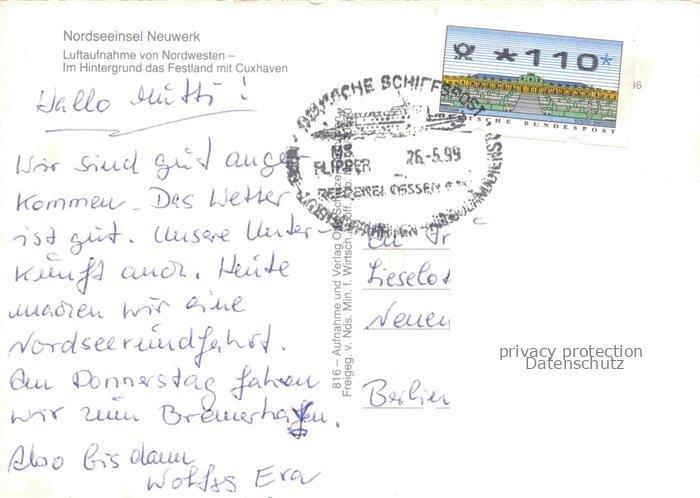 Nordseeinsel Neuwerk
Luftaufnahme von Nordwesten –
Im Hintergrund das Festland mit Cuxhaven
Hallo Mutti!
Wir sind gut ange-
kommen. Das Wetter
ist gut. Unsere Unter-
kunft auch. Heute
machen wir eine
Nordseerundfahrt.
Am Donnerstag fahren
wir zum Bremerhafen.
Also bis dann
Eva
*110*
DEUTSCHE BUNDESPOST
96
DEUTSCHE SCHIFFSPOST
MS
FLIPPER
26.-5.99
REEDEREI CASSEN
816 – Aufnahme und Verlag
Freigeg. v. Nds. Min. f. Wirtsch.
An Fr
Lieselot
Neuen
Berlin
privacy protection
Datenschutz